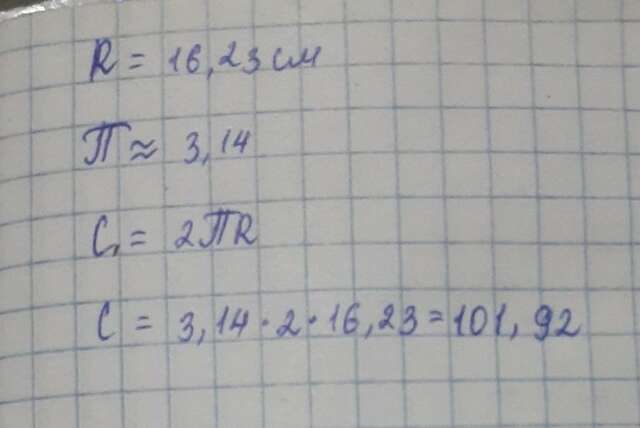 R = 16,23 см
П ≈ 3,14
C = 2ПR
C = 3,14 · 2 · 16,23 = 101,92